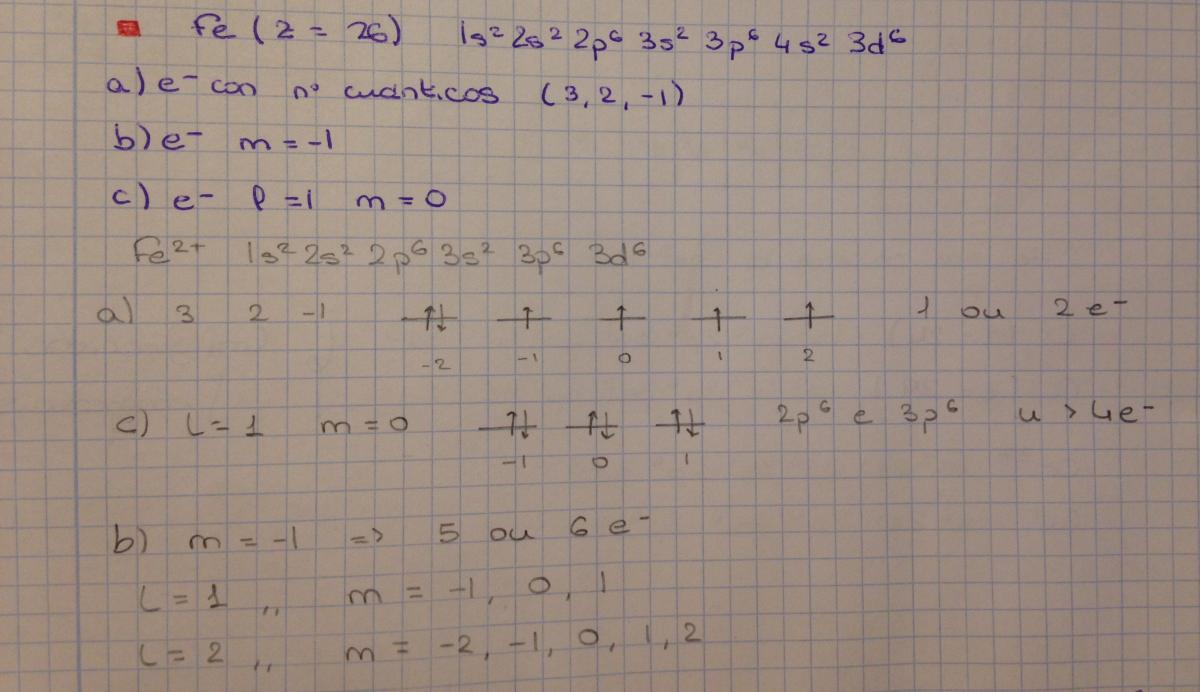 Fe (Z = 26) 1s² 2s² 2p⁶ 3s² 3p⁶ 4s² 3d⁶
a) e⁻ con nº cuánticos (3, 2, -1)
b) e⁻ m = -1
c) e⁻ l = 1 m = 0
Fe²⁺ 1s² 2s² 2p⁶ 3s² 3p⁶ 3d⁶
a) 3 2 -1 ↑↓ ↑ ↑ ↑ ↑ 1 ou 2 e⁻
-2 -1 0 1 2
c) L = 1 m = 0 ↑↓ ↑↓ ↑↓ 2p⁶ e 3p⁶ 4e⁻
-1 0 1
b) m = -1 => 5 ou 6 e⁻
L = 1 ,, m = -1, 0, 1
L = 2 ,, m = -2, -1, 0, 1, 2